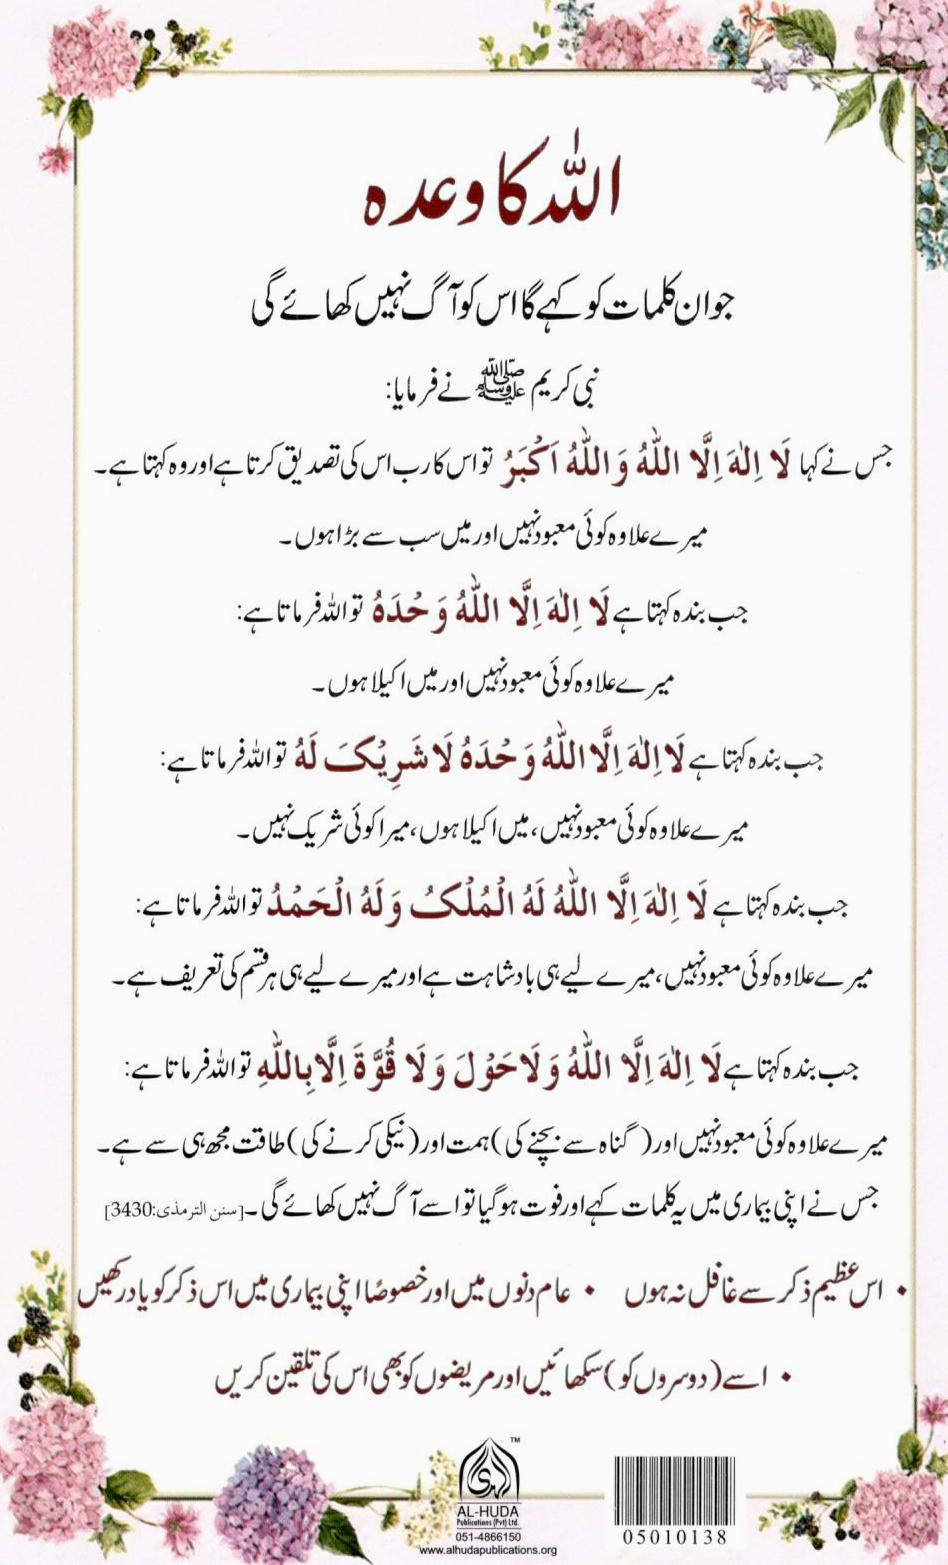 اللہ کا وعدہ
جو ان کلمات کو کہے گا اس کو آگ نہیں کھائے گی
نبی کریم ﷺ نے فرمایا:
جس نے کہا لَا اِلٰہَ اِلَّا اللّٰہُ وَاللّٰہُ اَکْبَرُ تو اس کا رب اس کی تصدیق کرتا ہے اور وہ کہتا ہے۔
میرے علاوہ کوئی معبود نہیں اور میں سب سے بڑا ہوں۔
جب بندہ کہتا ہے لَا اِلٰہَ اِلَّا اللّٰہُ وَحْدَہُ تو اللہ فرماتا ہے:
میرے علاوہ کوئی معبود نہیں اور میں اکیلا ہوں۔
جب بندہ کہتا ہے لَا اِلٰہَ اِلَّا اللّٰہُ وَحْدَہُ لَا شَرِیْکَ لَہُ تو اللہ فرماتا ہے:
میرے علاوہ کوئی معبود نہیں، میں اکیلا ہوں، میرا کوئی شریک نہیں۔
جب بندہ کہتا ہے لَا اِلٰہَ اِلَّا اللّٰہُ لَہُ الْمُلْکُ وَلَہُ الْحَمْدُ تو اللہ فرماتا ہے:
میرے علاوہ کوئی معبود نہیں، میرے لیے ہی بادشاہت ہے اور میرے لیے ہی ہر قسم کی تعریف ہے۔
جب بندہ کہتا ہے لَا اِلٰہَ اِلَّا اللّٰہُ وَلَا حَوْلَ وَلَا قُوَّۃَ اِلَّا بِاللّٰہِ تو اللہ فرماتا ہے:
میرے علاوہ کوئی معبود نہیں اور (گناہ سے بچنے کی) ہمت اور (نیکی کرنے کی) طاقت مجھ ہی سے ہے۔
جس نے اپنی بیماری میں یہ کلمات کہے اور فوت ہو گیا تو اسے آگ نہیں کھائے گی۔ [سنن الترمذی:3430]
• اس عظیم ذکر سے غافل نہ ہوں • عام دنوں میں اور خصوصًا اپنی بیماری میں اس ذکر کو یاد رکھیں
• اسے (دوسروں کو) سکھائیں اور مریضوں کو بھی اس کی تلقین کریں
الھدیٰ ™
AL-HUDA
Publications (Pvt) Ltd.
051-4866150
www.alhudapublications.org
05010138